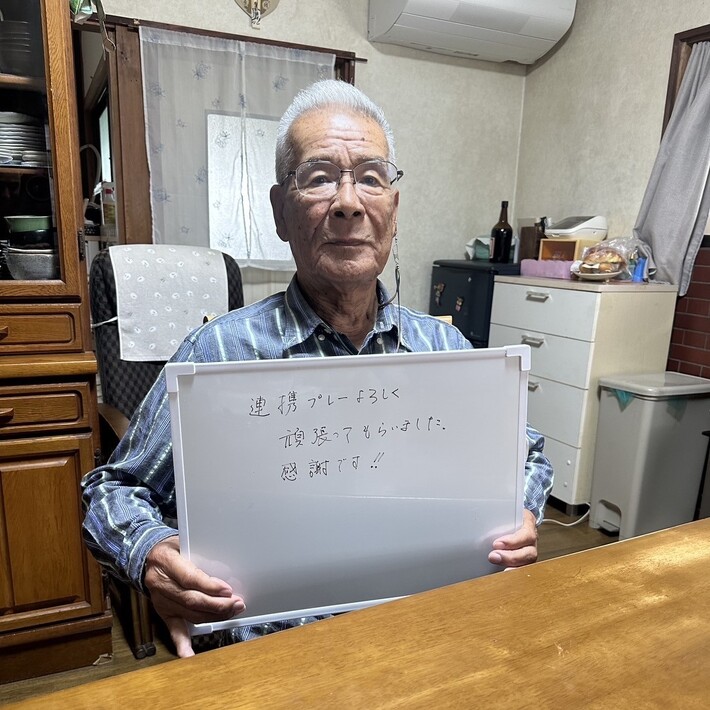 連携プレーよろしく
頑張ってもらいました。
感謝です!!